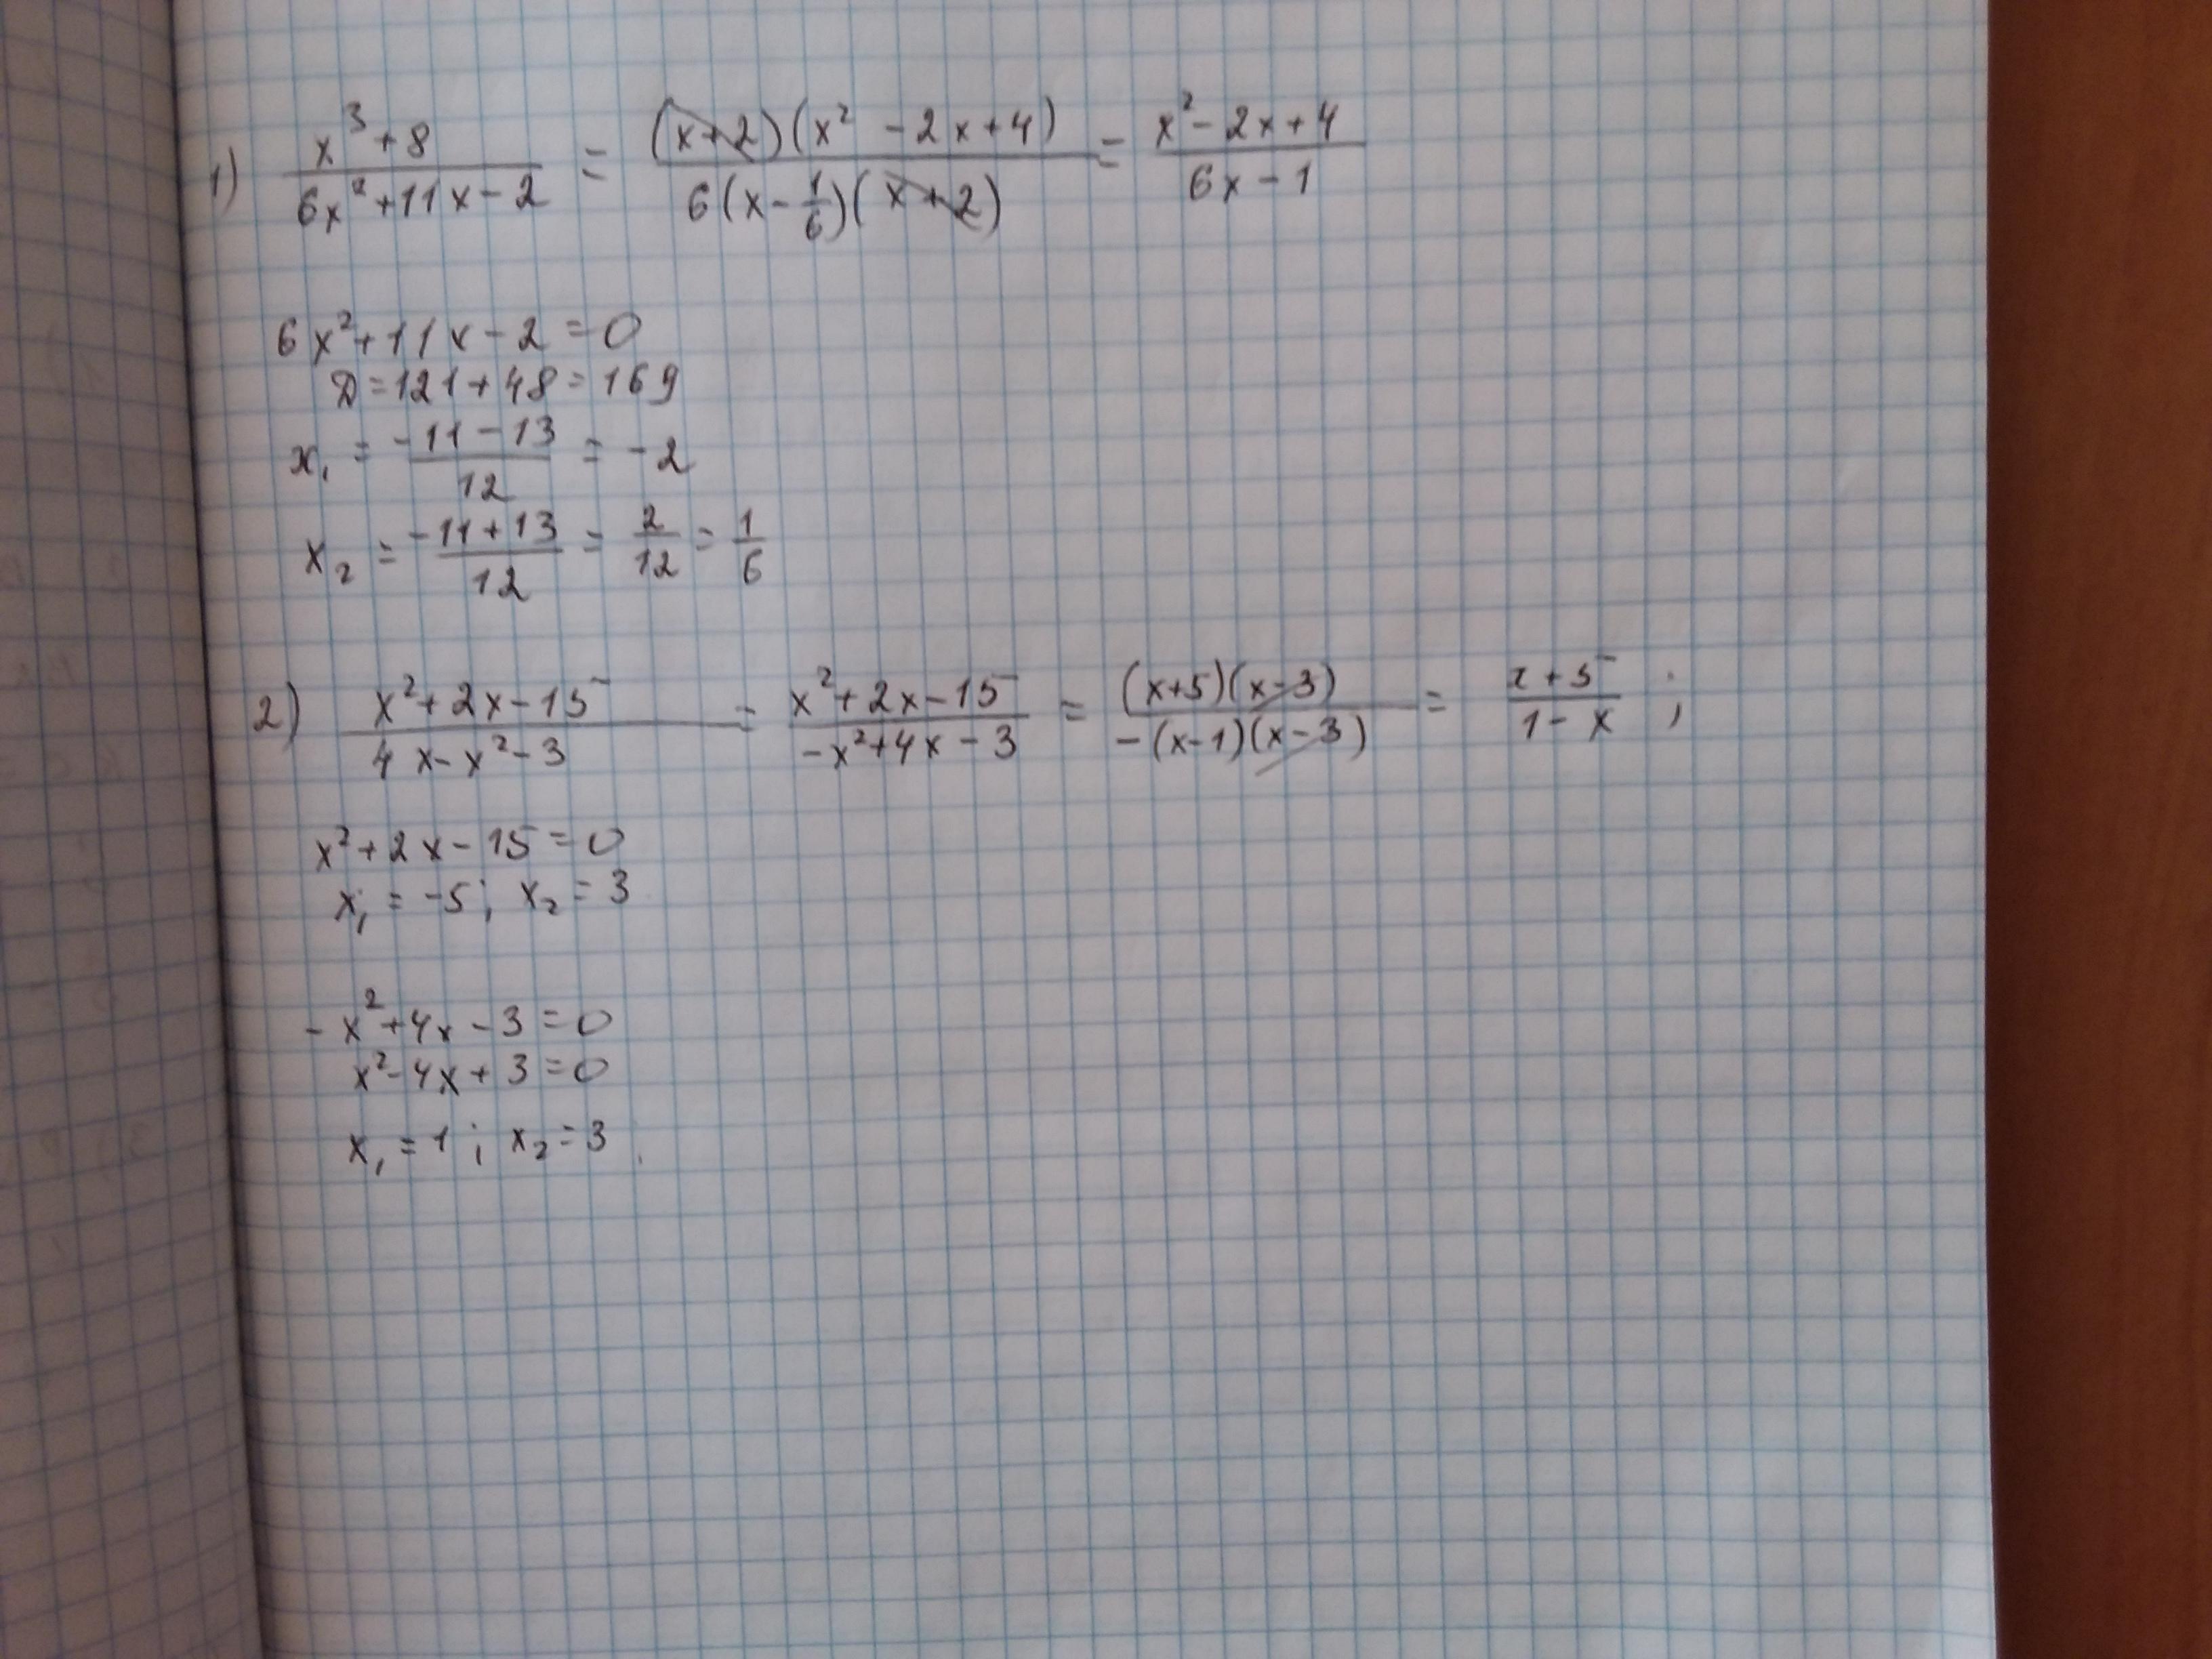 1) (x³+8)/(6x²+11x-2) = ((x+2)(x²-2x+4))/(6(x-1/6)(x+2)) = (x²-2x+4)/(6x-1)
6x²+11x-2=0
D=121+48=169
x₁ = (-11-13)/12 = -2
x₂ = (-11+13)/12 = 2/12 = 1/6
2) (x²+2x-15)/(4x-x²-3) = (x²+2x-15)/(-x²+4x-3) = ((x+5)(x-3))/(-(x-1)(x-3)) = (x+5)/(1-x) ;
x²+2x-15=0
x₁=-5; x₂=3
-x²+4x-3=0
x²-4x+3=0
x₁=1; x₂=3.